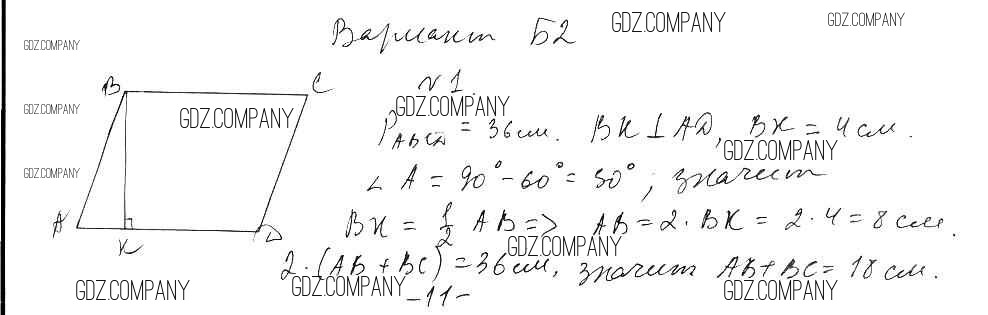 Вариант Б2
GDZ.COMPANY
GDZ.COMPANY
GDZ.COMPANY
B
C
№1.
GDZ.COMPANY
GDZ.COMPANY
GDZ.COMPANY
P_ABCD = 36 см. BK ⊥ AD, BK = 4 см.
GDZ.COMPANY
GDZ.COMPANY
∠ A = 90° - 60° = 30°; значит
A
K
D
BK = 1/2 AB => AB = 2 · BK = 2 · 4 = 8 см.
GDZ.COMPANY
2 · (AB + BC) = 36 см, значит AB + BC = 18 см.
GDZ.COMPANY
GDZ.COMPANY
GDZ.COMPANY
-11-